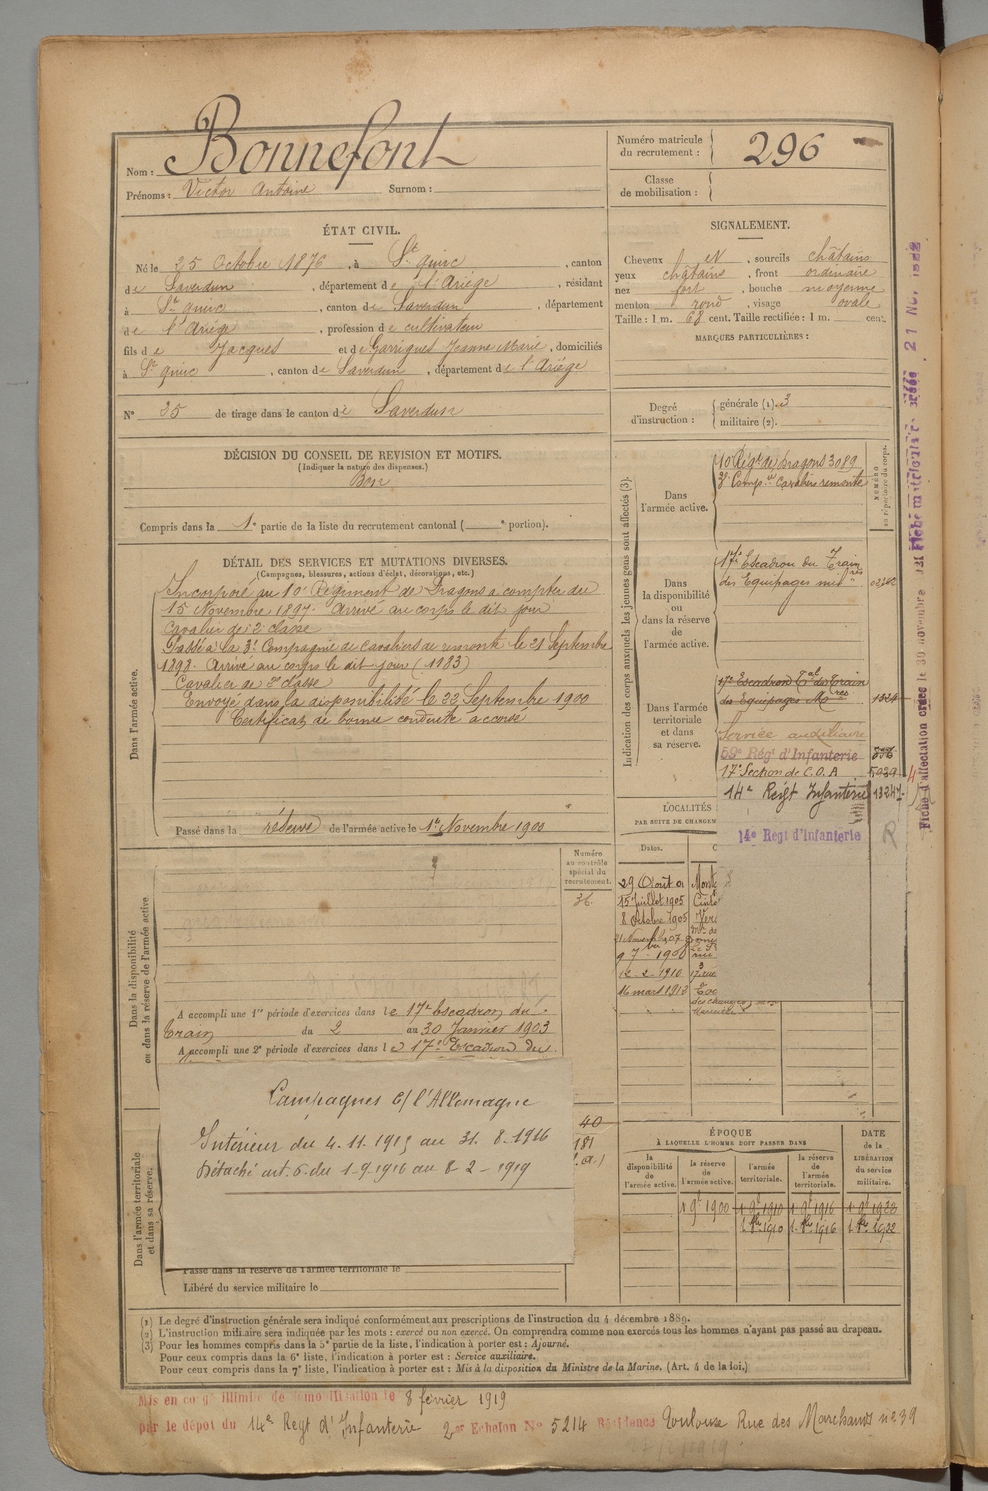 Nom : Bonnefont
Prénoms : Victor Antoine Surnom :
Numéro matricule du recrutement : 296
Classe de mobilisation :
ÉTAT CIVIL.
Né le 25 Octobre 1876, à St quirc, canton
de Saverdun, département de l'Ariège, résidant
à St quirc, canton de Saverdun, département
de l'Ariège, profession de cultivateur
fils de Jacques et de Garrigues Jeanne Marie, domiciliés
à St quirc, canton de Saverdun, département de l'Ariège
N° 35 de tirage dans le canton de Saverdun
SIGNALEMENT.
Cheveux et, sourcils châtains
yeux châtains, front ordinaire
nez fort, bouche moyenne
menton rond, visage ovale
Taille : 1 m. 68 cent. Taille rectifiée : 1 m. cent.
MARQUES PARTICULIÈRES :
Degré d'instruction : générale (1). 3
militaire (2).
DÉCISION DU CONSEIL DE REVISION ET MOTIFS.
(Indiquer la nature des dispenses.)
Bon
Compris dans la 1e partie de la liste du recrutement cantonal ( e portion).
DÉTAIL DES SERVICES ET MUTATIONS DIVERSES.
(Campagnes, blessures, actions d'éclat, décorations, etc.)
Dans l'armée active.
Incorporé au 10e Régiment de Dragons à compter du
15 Novembre 1897. Arrivé au corps le dit jour
Cavalier de 2e classe
Passé à la 3e Compagnie de cavaliers de remonte le 21 Septembre
1898. Arrivé au corps le dit jour (1183)
Cavalier de 2e classe
Envoyé dans la disponibilité le 22 Septembre 1900
Certificat de bonne conduite accordé
Passé dans la réserve de l'armée active le 1er Novembre 1900
Indication des corps auxquels les jeunes gens sont affectés (3).
NUMÉRO au répertoire du corps.
Dans l'armée active.
10e Régt de Dragons 3089
3e Compie Cavaliers remonte
Dans la disponibilité ou dans la réserve de l'armée active.
17e Escadron du Train
des Equipages mres
Dans l'armée territoriale et dans sa réserve.
17e Escadron Tal du Train
des Equipages Mres 1324
Service auxiliaire
59e Rég' d'Infanterie
17e Section de C.O.A 5039
14e Reigt Infanterie 13247
14e Regt d'Infanterie
R
LOCALITÉS
PAR SUITE DE CHANGEM
Dates.
29 Aout 01 Mont
15 Juillet 1905 Cint
8 Octobre 1905 Ver
9 7bre 1908 rue
12-2-1910 17 rue
16 mars 1913
des changes
Marseille
Numéro au contrôle spécial du recrutement.
36
Dans la disponibilité ou dans la réserve de l'armée active.
A accompli une 1re période d'exercices dans le 17e Escadron du
Train du 2 au 30 Janvier 1903
A accompli une 2e période d'exercices dans le 17e Escadron du
Campagnes c/ l'Allemagne
Intérieur du 4.11.1915 au 31.8.1916
Détaché art. 6. du 1-9-1916 au 8-2-1919
40
181
Dans l'armée territoriale et dans sa réserve.
Passé dans la réserve de l'armée territoriale le
Libéré du service militaire le
ÉPOQUE
À LAQUELLE L'HOMME DOIT PASSER DANS
la disponibilité de l'armée active.
la réserve de l'armée active.
l'armée territoriale.
la réserve de l'armée territoriale.
DATE de la LIBÉRATION du service militaire.
1 9bre 1900 1 9bre 1910 1 9bre 1916 1 9bre 1922
(1) Le degré d'instruction générale sera indiqué conformément aux prescriptions de l'instruction du 4 décembre 1889.
(2) L'instruction militaire sera indiquée par les mots : exercé ou non exercé. On comprendra comme non exercés tous les hommes n'ayant pas passé au drapeau.
(3) Pour les hommes compris dans la 5e partie de la liste, l'indication à porter est : Ajourné.
Pour ceux compris dans la 6e liste, l'indication à porter est : Service auxiliaire.
Pour ceux compris dans la 7e liste, l'indication à porter est : Mis à la disposition du Ministre de la Marine. (Art. 4 de la loi.)
Mis en congé illimité de démobilisation le 8 février 1919
par le dépot du 14e Regt d'Infanterie 2me Echelon N° 5214 Résidence Toulouse Rue des Marchands n° 39